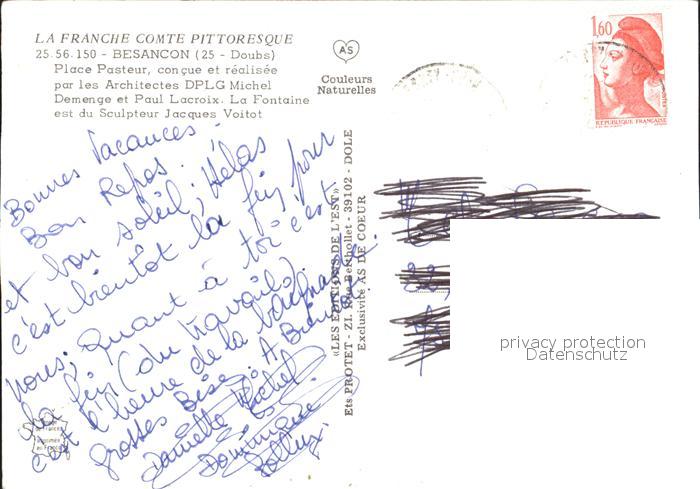 LA FRANCHE COMTE PITTORESQUE
25.56.150 - BESANCON (25 - Doubs)
Place Pasteur, conçue et réalisée
par les Architectes DPLG Michel
Demenge et Paul Lacroix. La Fontaine
est du Sculpteur Jacques Voitot
AS
Couleurs
Naturelles
1,60
REPUBLIQUE FRANÇAISE
Bonnes Vacances -
Bon Repos.
et bon soleil; Hélas
c'est bientôt la fin pour
nous; Quant à toi c'est
la fin (du travail);
c'est l'heure de la
grosses Bises. A Bientôt
Danielle Michel
Dominique
«LES EDITIONS DE L'EST»
Ets PROTET - ZI. Rue Berthollet - 39102 - DOLE
Exclusivité AS DE COEUR
privacy protection
Datenschutz